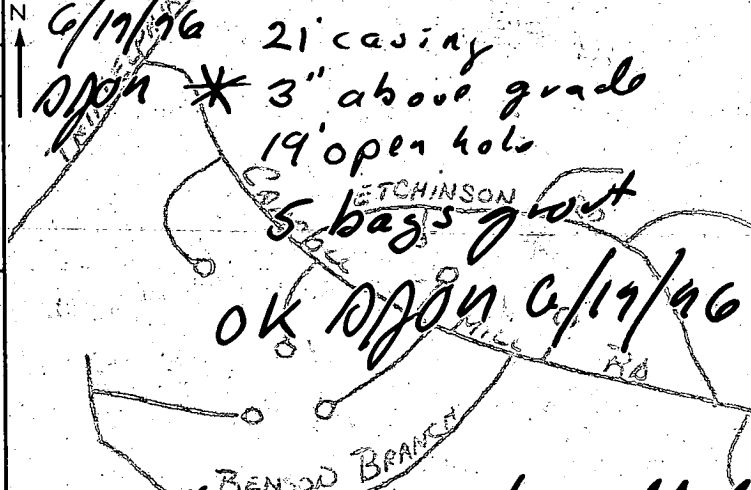 N
6/19/96
21' casing
3" above grade
19' open hole
ETCHINSON
5 bags grout
OK 6/19/96
MILL
RD
BENSON BRANCH